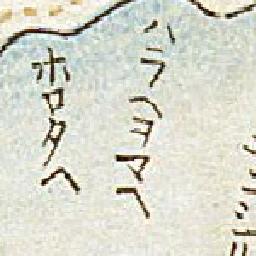 ハラヘヨマヘ
ホロタヘ